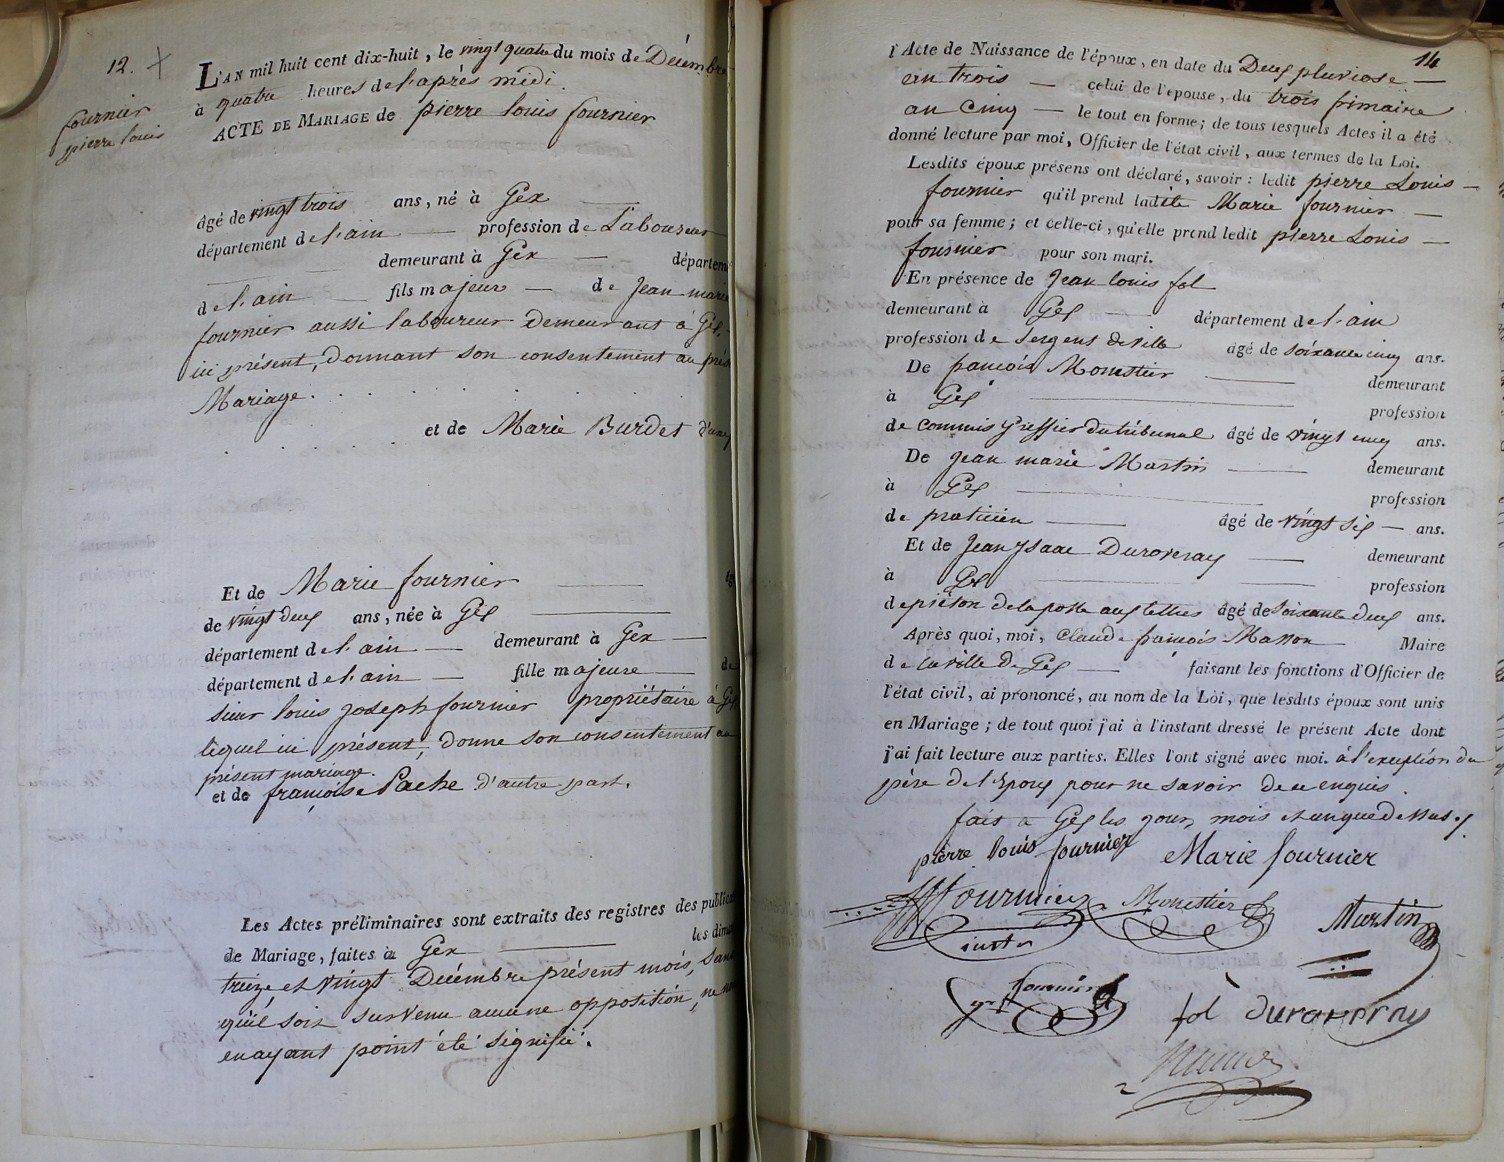 12.
fournier
pierre louis
L'AN mil huit cent dix-huit, le vingt quatre du mois de Décembre
à quatre heures de l'après midi.
ACTE DE MARIAGE de pierre louis fournier
âgé de vingt trois ans, né à Gex
département de l'ain profession de Laboureur
demeurant à Gex départem
de l'ain fils majeur de Jean marie
fournier aussi laboureur demeurant à Gex,
ici présent, donnant son consentement au prés
Mariage.
et de Marie Burdet d'une
Et de Marie fournier
de vingt deux ans, née à Gex
département de l'ain demeurant à Gex
département de l'ain fille majeure de
sieur louis joseph fournier propriétaire à Gex
lequel ici présent, donne son consentement au
présent mariage.
et de françoise Pache d'autre part.
Les Actes préliminaires sont extraits des registres des publica
de Mariage, faites à Gex les diman
treize et vingt Décembre présent mois, sans
qu'il soit survenu aucune opposition, ne m'
en ayant point été signifié.
14
l'Acte de Naissance de l'époux, en date du Deux pluviose
an trois celui de l'épouse, du trois frimaire
an Cinq le tout en forme; de tous lesquels Actes il a été
donné lecture par moi, Officier de l'état civil, aux termes de la Loi.
Lesdits époux présens ont déclaré, savoir: ledit pierre Louis
fournier qu'il prend ladite Marie fournier
pour sa femme; et celle-ci, qu'elle prend ledit pierre Louis
fournier pour son mari.
En présence de Jean louis fol
demeurant à Gex département de l'ain
profession de Sergent de ville âgé de soixante cinq ans.
De françois Monestier demeurant
à Gex profession
de Commis Greffier du tribunal âgé de vingt cinq ans.
De Jean marie Martin demeurant
à Gex profession
de praticien âgé de vingt six ans.
Et de Jean Isaac Duroveray demeurant
à Gex profession
de piéton de la poste aux lettres âgé de soixante deux ans.
Après quoi, moi, Claude françois Masson Maire
de la ville de Gex faisant les fonctions d'Officier de
l'état civil, ai prononcé, au nom de la Loi, que lesdits époux sont unis
en Mariage; de tout quoi j'ai à l'instant dressé le présent Acte dont
j'ai fait lecture aux parties. Elles l'ont signé avec moi. à l'exception du
père de l'Epoux pour ne savoir de ce enquis.
fait à Gex les jour, mois et an que dessus.
pierre louis fournier Marie fournier
fournier Monestier Martin
fournier
fol Duroveray